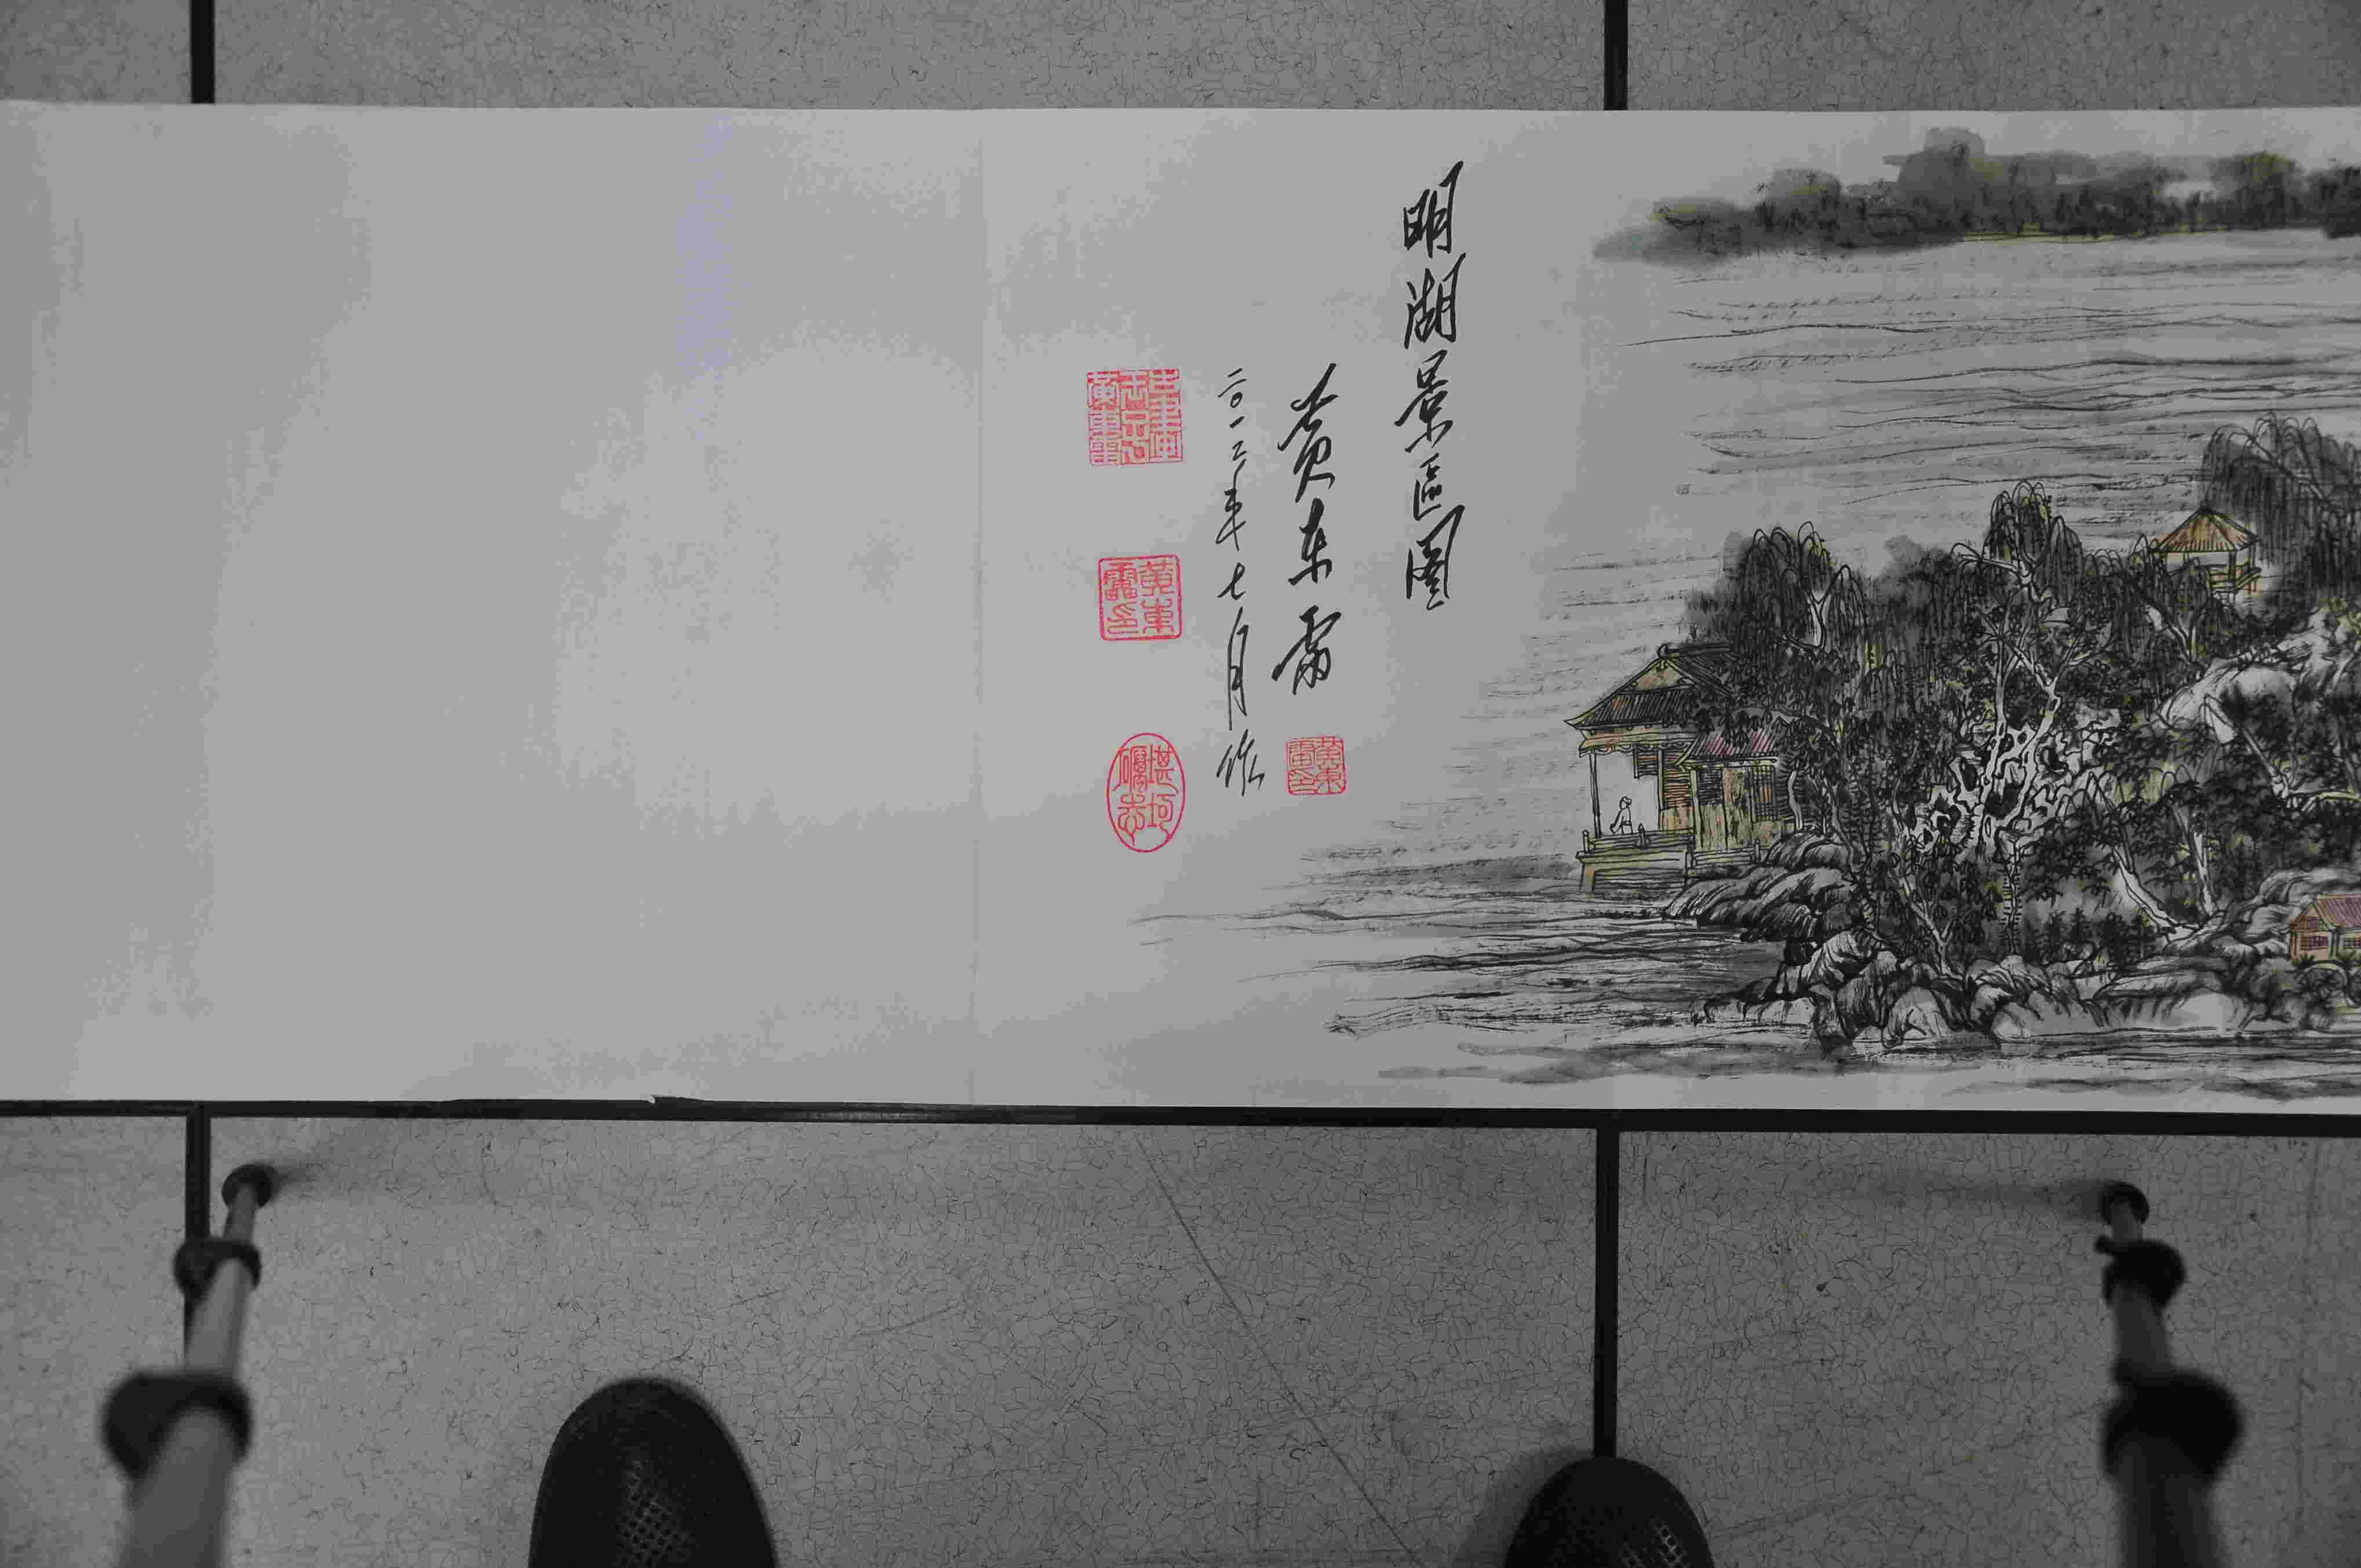 明湖景區圖
黄东雷
二〇一二年七月作
黄東雷印
黄東雷印
堪坷礪志